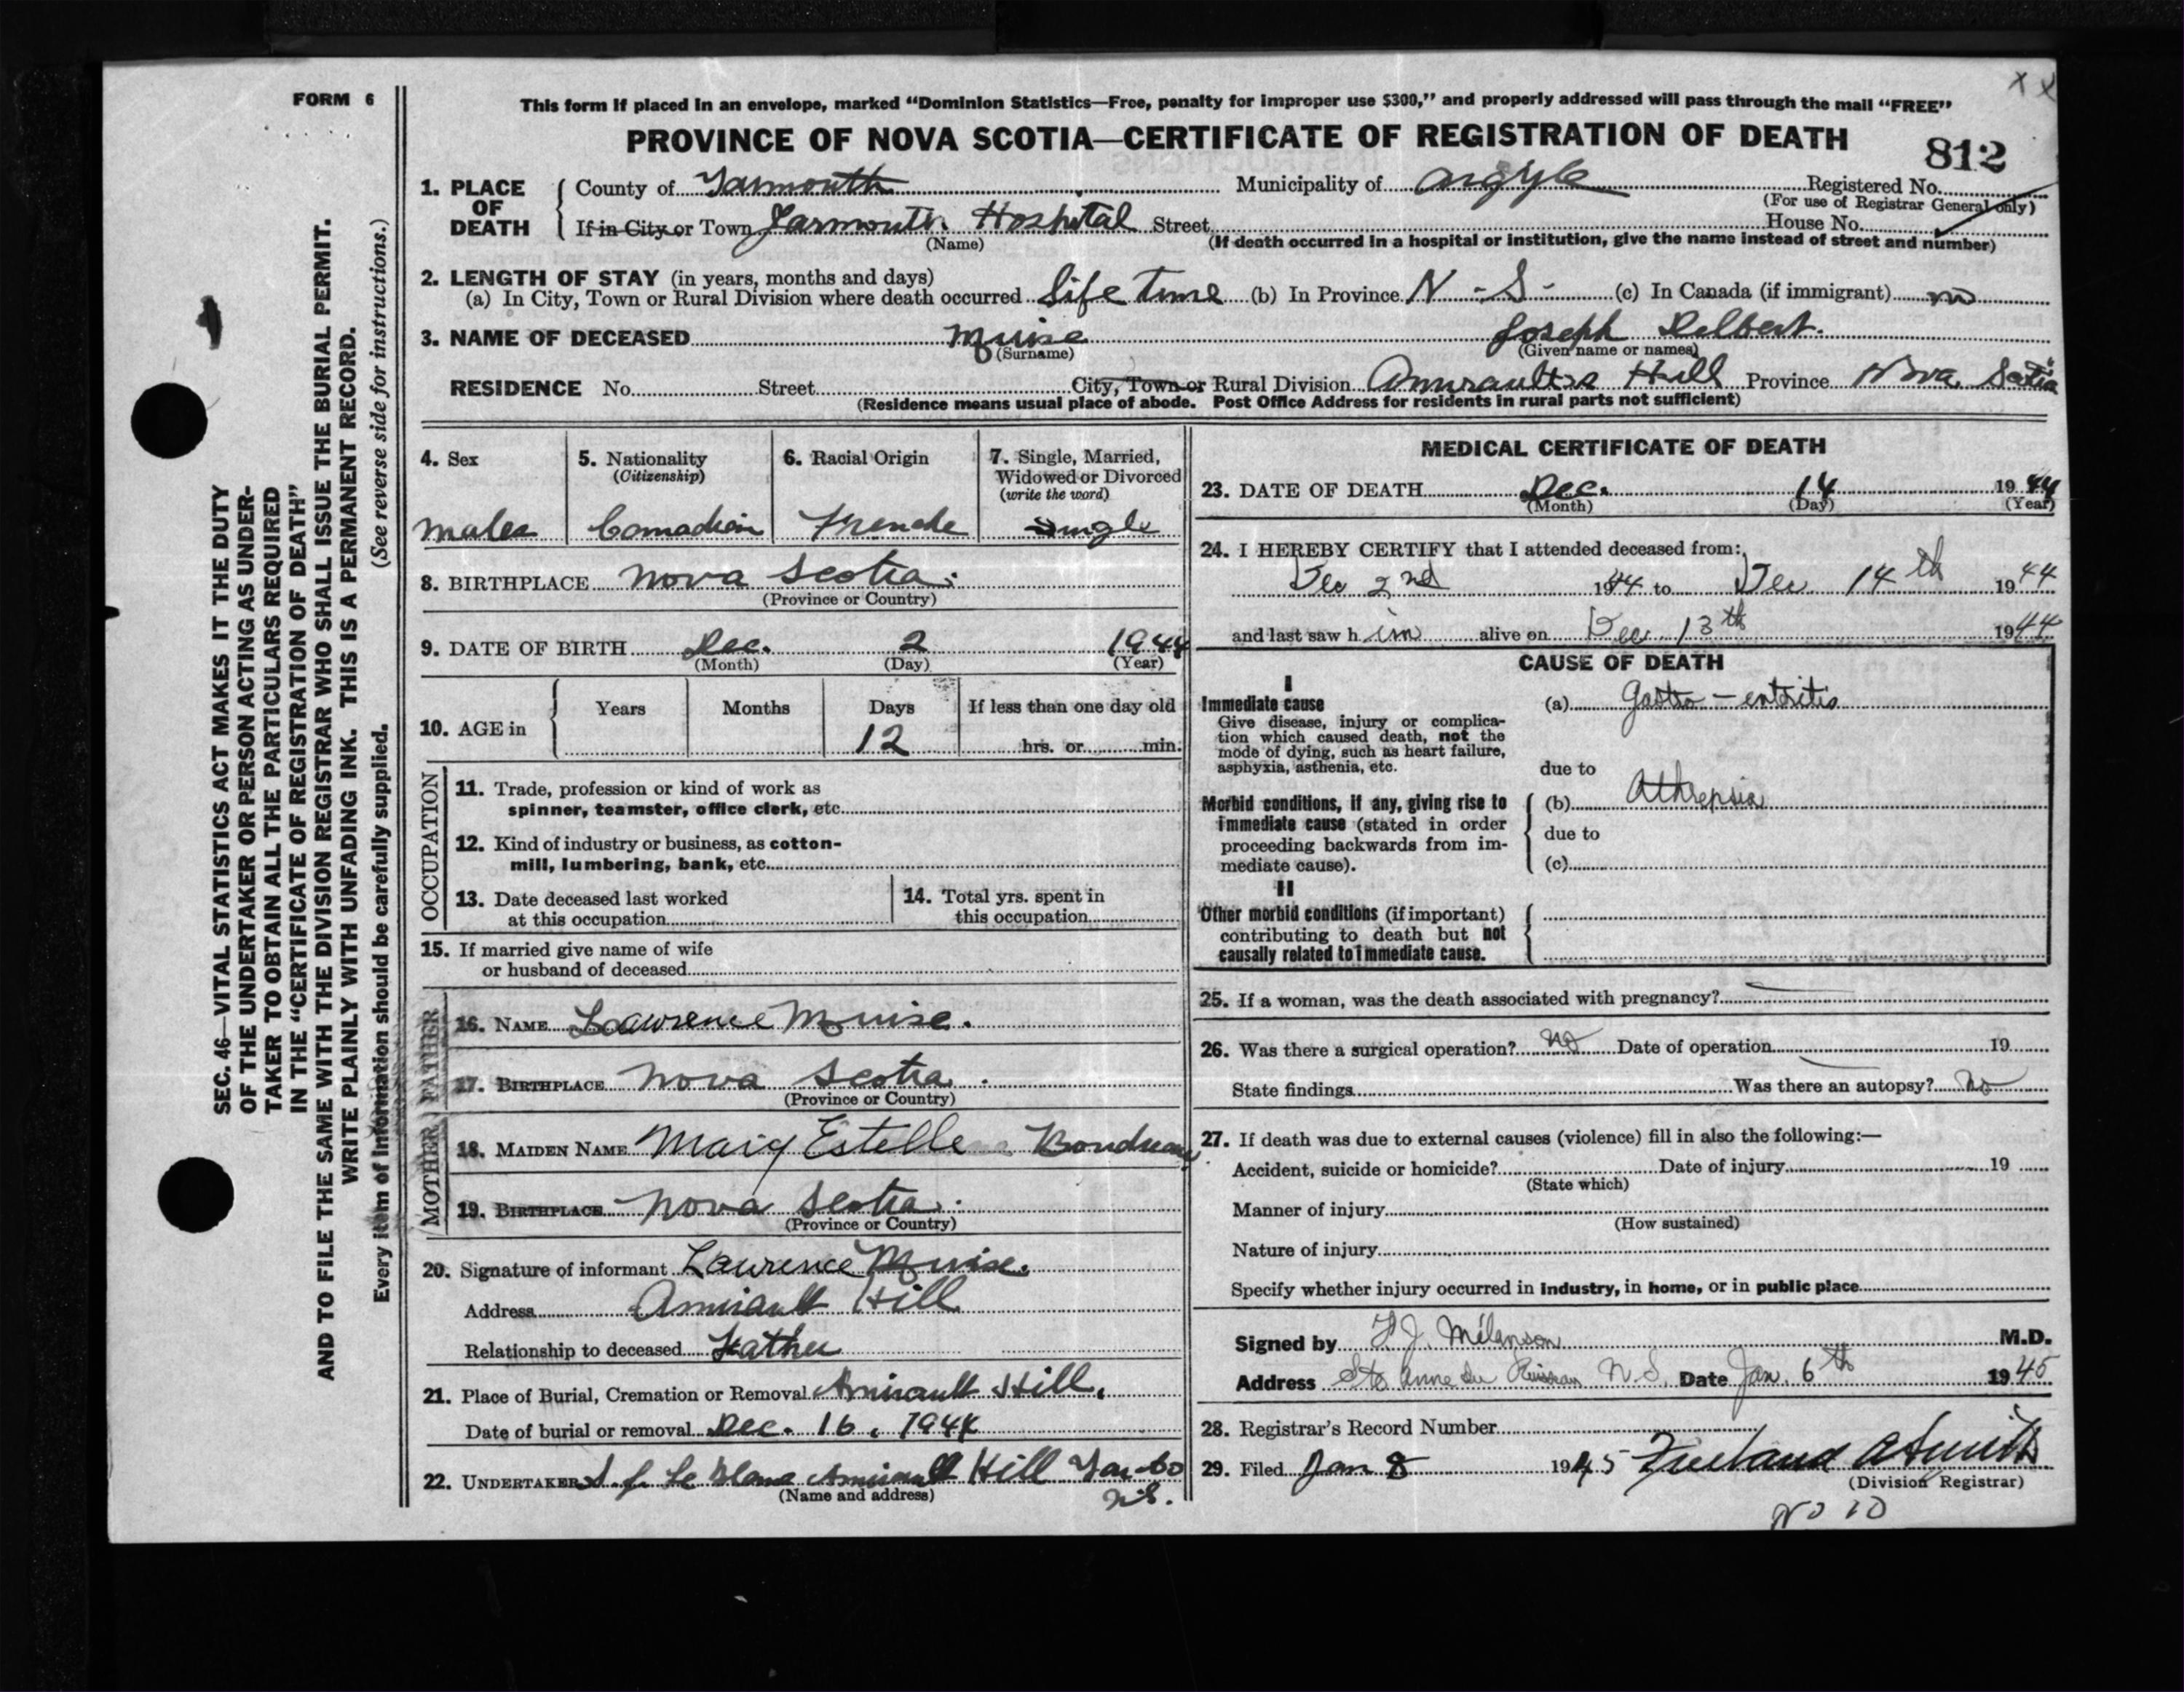 FORM 6
This form if placed in an envelope, marked “Dominion Statistics—Free, penalty for improper use $300,” and properly addressed will pass through the mail “FREE”
x x
PROVINCE OF NOVA SCOTIA—CERTIFICATE OF REGISTRATION OF DEATH
812
1. PLACE OF DEATH
County of Yarmouth Municipality of Argyle Registered No.
(For use of Registrar General only)
If in City or Town Yarmouth Hospital Street House No.
(Name) (If death occurred in a hospital or institution, give the name instead of street and number)
2. LENGTH OF STAY (in years, months and days)
(a) In City, Town or Rural Division where death occurred Life Time (b) In Province N - S - (c) In Canada (if immigrant) no
3. NAME OF DECEASED Muise Joseph Delbert.
(Surname) (Given name or names)
RESIDENCE No. Street City, Town or Rural Division Amiraults Hill Province Nova Scotia
(Residence means usual place of abode. Post Office Address for residents in rural parts not sufficient)
4. Sex
male
5. Nationality
(Citizenship)
Canadian
6. Racial Origin
French
7. Single, Married,
Widowed or Divorced
(write the word)
Single
8. BIRTHPLACE Nova Scotia.
(Province or Country)
9. DATE OF BIRTH Dec. 2 1944
(Month) (Day) (Year)
10. AGE in Years Months Days If less than one day old
12 hrs. or min.
OCCUPATION
11. Trade, profession or kind of work as
spinner, teamster, office clerk, etc.
12. Kind of industry or business, as cotton-
mill, lumbering, bank, etc.
13. Date deceased last worked
at this occupation
14. Total yrs. spent in
this occupation
15. If married give name of wife
or husband of deceased
FATHER
16. NAME Lawrence Muise.
17. BIRTHPLACE Nova Scotia.
(Province or Country)
MOTHER
18. MAIDEN NAME Mary Estelle Boudreau
19. BIRTHPLACE Nova Scotia.
(Province or Country)
20. Signature of informant Lawrence Muise.
Address Amirault Hill
Relationship to deceased Father
21. Place of Burial, Cremation or Removal Amirault Hill,
Date of burial or removal Dec. 16, 1944
22. UNDERTAKER S. J. Le Blanc Amirault Hill Yar Co
(Name and address) N.S.
MEDICAL CERTIFICATE OF DEATH
23. DATE OF DEATH Dec. 14 1944
(Month) (Day) (Year)
24. I HEREBY CERTIFY that I attended deceased from:
Dec 2nd 1944 to Dec 14th 1944
and last saw him alive on Dec 13th 1944
CAUSE OF DEATH
I
Immediate cause
Give disease, injury or complica-
tion which caused death, not the
mode of dying, such as heart failure,
asphyxia, asthenia, etc.
(a) Gastro-enteritis
due to
Morbid conditions, if any, giving rise to
immediate cause (stated in order
proceeding backwards from im-
mediate cause).
(b) Athrepsia
due to
(c)
II
Other morbid conditions (if important)
contributing to death but not
causally related to immediate cause.
25. If a woman, was the death associated with pregnancy?
26. Was there a surgical operation? No Date of operation 19
State findings Was there an autopsy? No
27. If death was due to external causes (violence) fill in also the following:—
Accident, suicide or homicide? Date of injury 19
(State which)
Manner of injury
(How sustained)
Nature of injury
Specify whether injury occurred in industry, in home, or in public place
Signed by Mélanson M.D.
Address Ste Anne du Ruisseau N.S. Date Jan. 6th 1945
28. Registrar's Record Number
29. Filed Jan 8 1945 Freeland A Smith
(Division Registrar)
No 10
SEC. 46—VITAL STATISTICS ACT MAKES IT THE DUTY
OF THE UNDERTAKER OR PERSON ACTING AS UNDER-
TAKER TO OBTAIN ALL THE PARTICULARS REQUIRED
IN THE “CERTIFICATE OF REGISTRATION OF DEATH”
AND TO FILE THE SAME WITH THE DIVISION REGISTRAR WHO SHALL ISSUE THE BURIAL PERMIT.
WRITE PLAINLY WITH UNFADING INK. THIS IS A PERMANENT RECORD.
Every item of information should be carefully supplied. (See reverse side for instructions.)